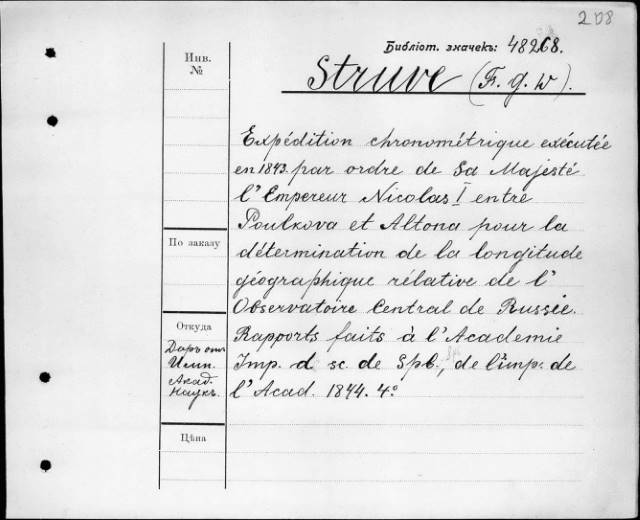 208
Библіот. значекъ: 48268.
Инв.
№
Struve (F. g. W).
Expédition chronométrique exécutée
en 1843. par ordre de Sa Majesté
l'Empereur Nicolas I entre
Poulkova et Altona pour la
По заказу
détermination de la longitude
géographique rélative de l'
Observatoire Central de Russie.
Откуда
Даръ отъ
Имп.
Акад.
Наукъ.
Rapports faits à l'Academie
Imp. d. sc. de Spb., de l'imp. de
l'Acad. 1844. 4º
Цѣна